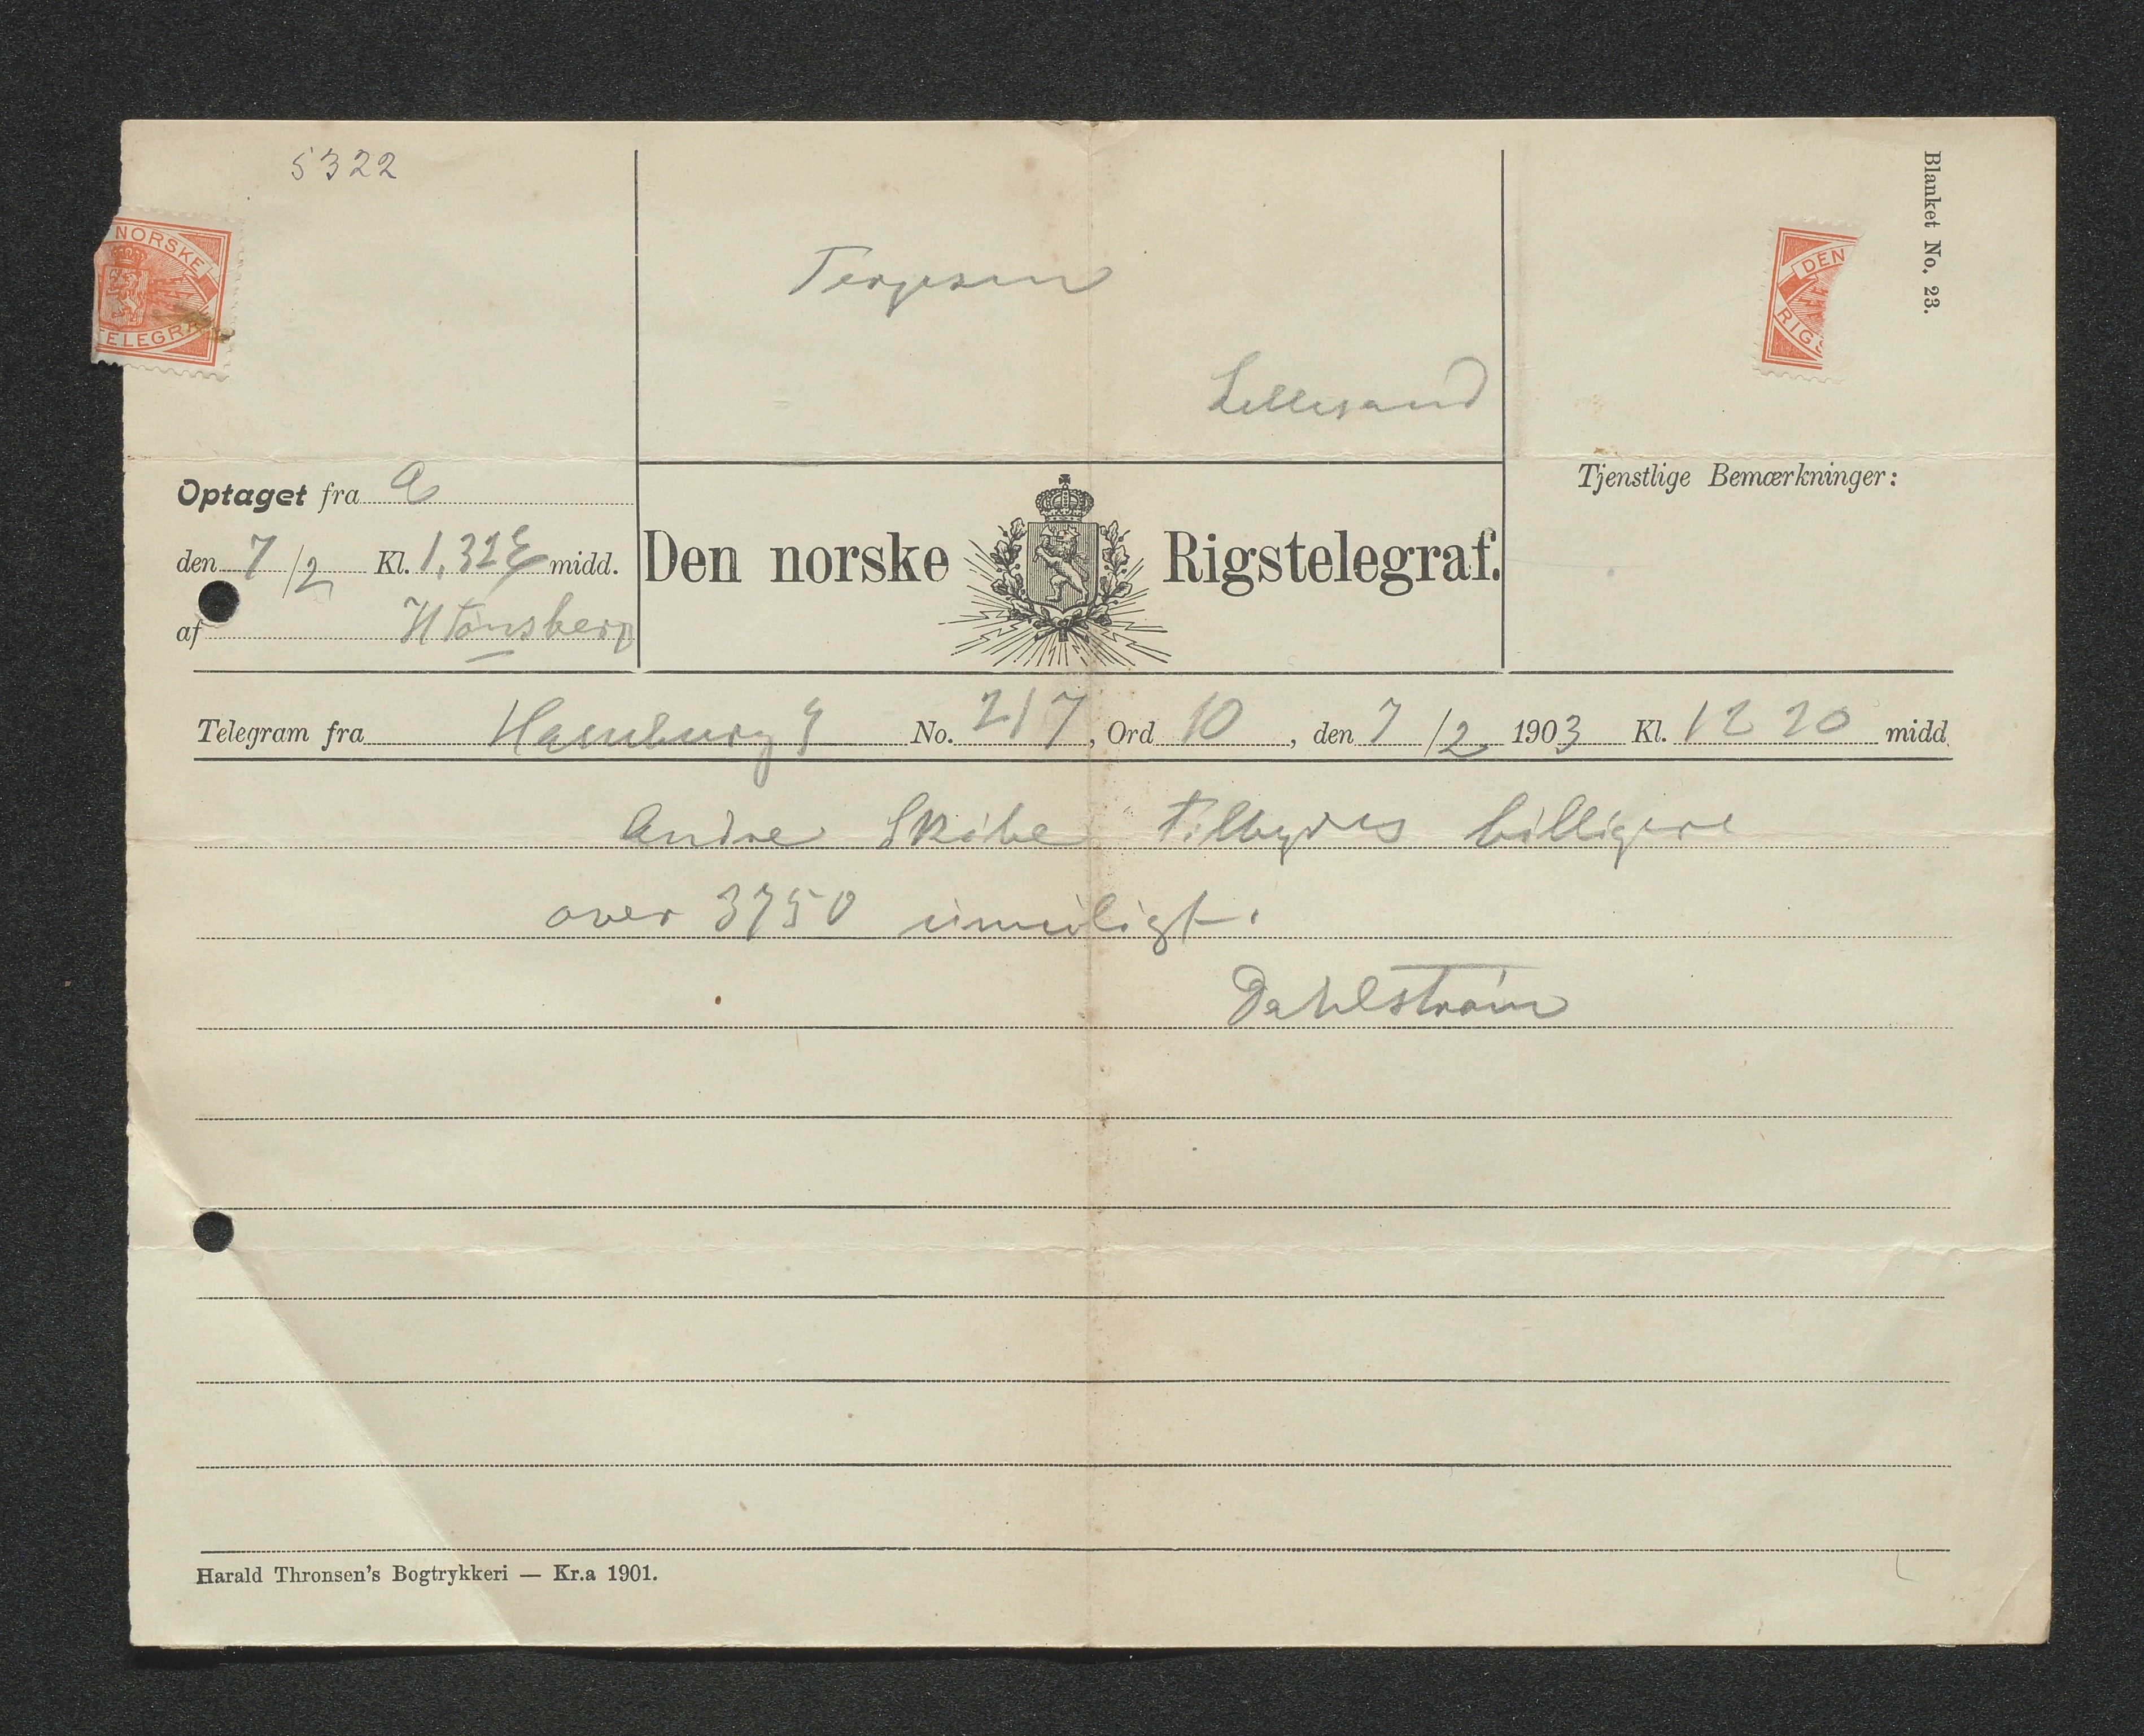 5322
NORSKE
TELEGRAF
Terjesen
Lillesand
DEN
RIGS
Blanket No. 23.
Optaget fra a
den 7/2 Kl. 1,32 E midd.
af H Tønsberg
Den norske Rigstelegraf.
Tjenstlige Bemærkninger:
Telegram fra Hamburg No. 217, Ord 10, den 7/2 1903 Kl. 12 20 midd.
Andre Skibe tilbydes billigere
over 3750 umuligt.
Dahlstrøm
Harald Thronsen's Bogtrykkeri — Kr.a 1901.